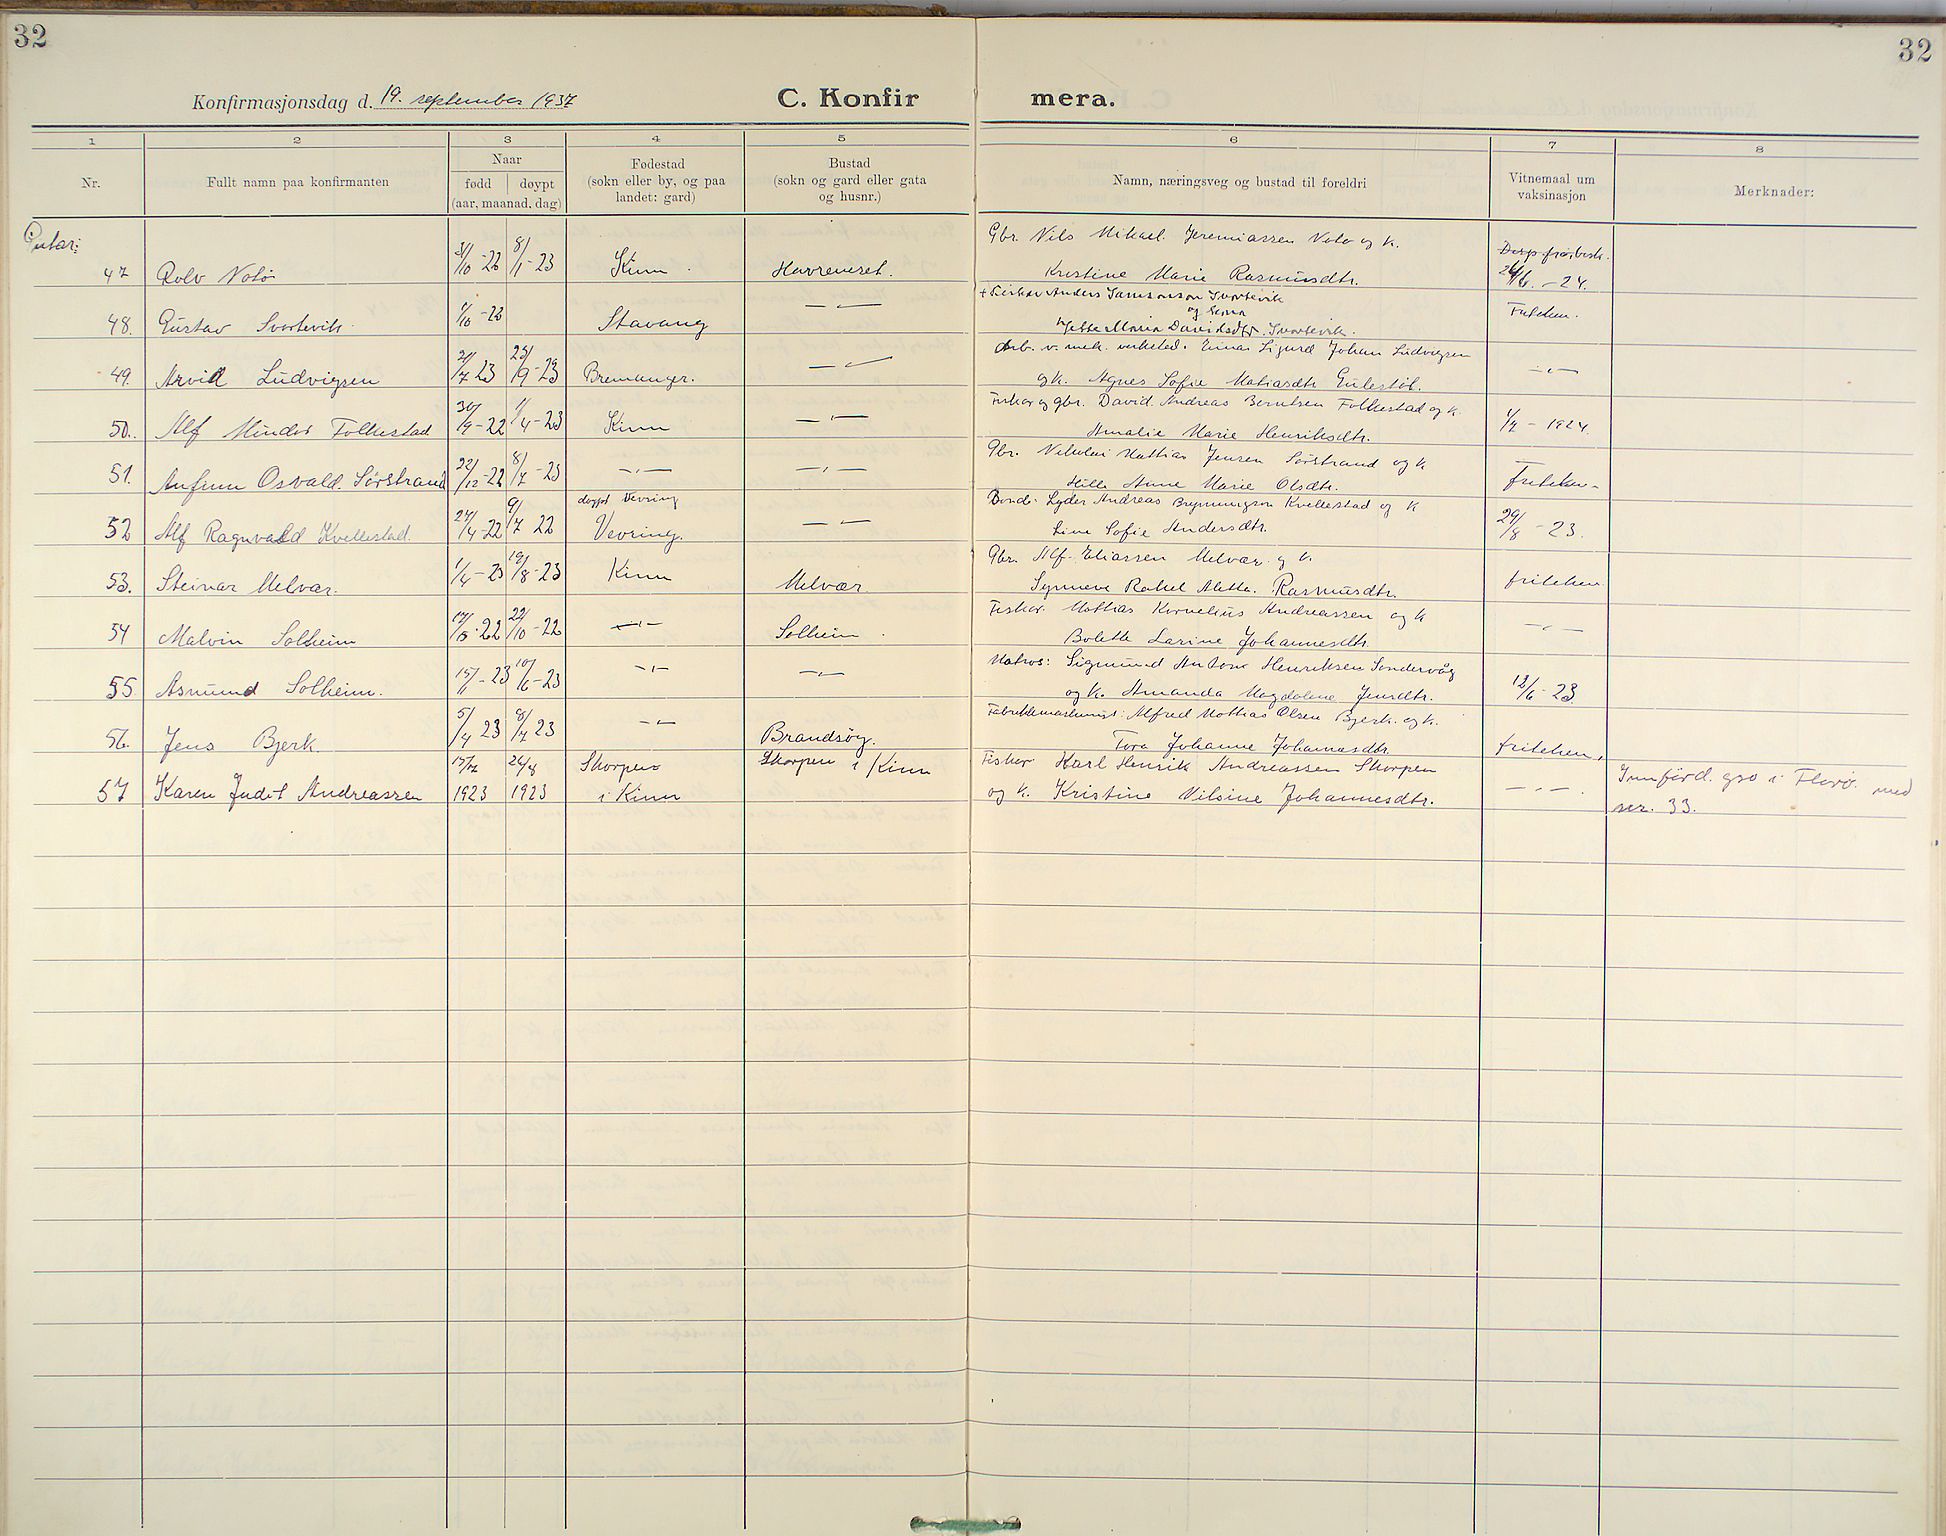 32
32
Konfirmasjonsdag d. 19. september 1937
C. Konfir mera.
1 2 3 4 5 6 7 8
Nr.
Fullt namn paa konfirmanten
Naar
fødd døypt
(aar, maanad, dag)
Fødestad
(sokn eller by, og paa
landet: gard)
Bustad
(sokn og gard eller gata
og husnr.)
Namn, næringsveg og bustad til foreldri
Vitnemaal um
vaksinasjon
Merknader:
Gutar:
Gbr. Nils Mikael Jeremiassen Notø og k.
47 Rolv Notø 3/10-22 8/1-23 Kinn. Havreneset. Kristine Marie Rasmusdtr. 24/6.-24.
+ Fiskar Anders Samsonson Svortevik
48. Gustav Svortevik 1/10-22 Stavang —"— og kona Maria Davidsdtr. Svortevik. Friteken.
Arb. v. mek. verksted. Einar Sigurd Johan Ludvigsen
49. Arvid Ludvigsen 21/7 23 23/9-23 Bremanger. —"— og k. Agnes Sofie Matiasdtr Gulestøl. —"—
Fiskar og gbr. David Andreas Berntsen Folkestad og k.
50. Alf Mindor Folkestad 30/9-22 1/4-23 Kinn —"— Amalie Marie Henriksdtr. 1/7-1924.
Gbr. Nikolai Mattias Jensen Sørstrand og k
51. Anfinn Osvald Sørstrand 22/12-22 8/7-23 —"— —"— Hille Anne Marie Olsdtr. friteken-
døypt Vevring
Bonde Lyder Andreas Brynningson Kvellestad og k
52 Alf Ragnvald Kvellestad. 24/4-22 9/7 22 Vevring. —"— Line Sofie Andersdtr. 29/8-23.
Gbr. Alf Eliassen Melvær og k.
53. Steinar Melvær. 1/4-23 19/8-23 Kinn Melvær Synneve Rakel Aletta Rasmusdtr. friteken
Fiskar Mattias Kornelius Andreassen og k
54 Malvin Solheim 22/10-22 —"— Solheim. Bolette Larine Johannesdtr. —"—
Matros: Sigmund Antone Henriksen Søndervåg
55 Asmund Solheim. 15/1-23 10/6-23 —"— —"— og k. Amanda Magdalene Jensdtr. 12/6-23
Fabrikkmaskinist: Alfred Mattias Olsen Bjerk og k.
56. Jens Bjerk 5/4 23 8/7 23 —"— Brandsøy. Tora Johanne Johannesdtr. friteken,
26/8 Skorpen Skorpen i Kinn Fiskar Karl Henrik Andreassen Skorpen
57 Karen Judit Andreassen 1923 1923 i Kinn og k. Kristine Nilsine Johannesdtr. —"—.
Innførd i Florø med
nr. 33.